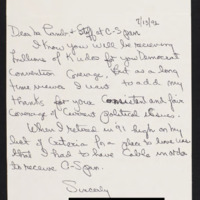 7/15/92
Dear Mr Lamb & Staff at C-Span
I know you will be receiving
millions of Kudos for your Democrat
Convention Coverage, but as a long
time viewer I want to add my
thanks for your consistent and fair
coverage of current political issues.
When I retired in '91 high on my
list of criteria for a place to live was
that I had to have cable in order
to receive C-Span.
Sincerely